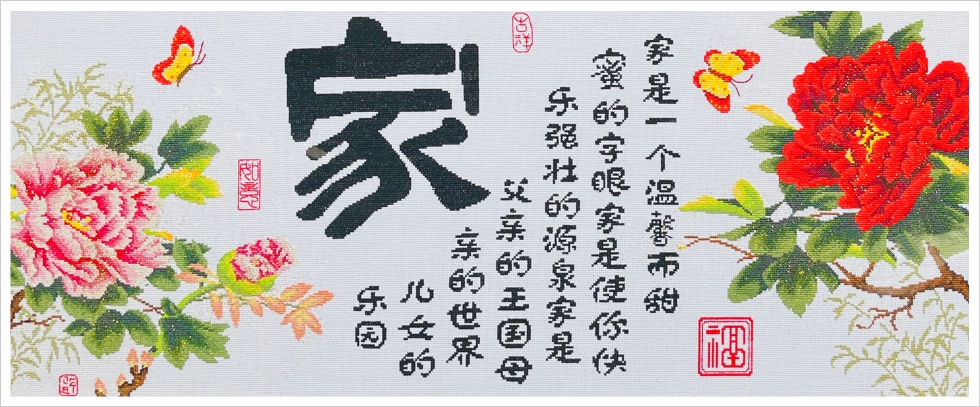 家
家是一个温馨而甜
蜜的字眼家是使你快
乐强壮的源泉家是
父亲的王国母
亲的世界
儿女的
乐园
吉祥
如意
福